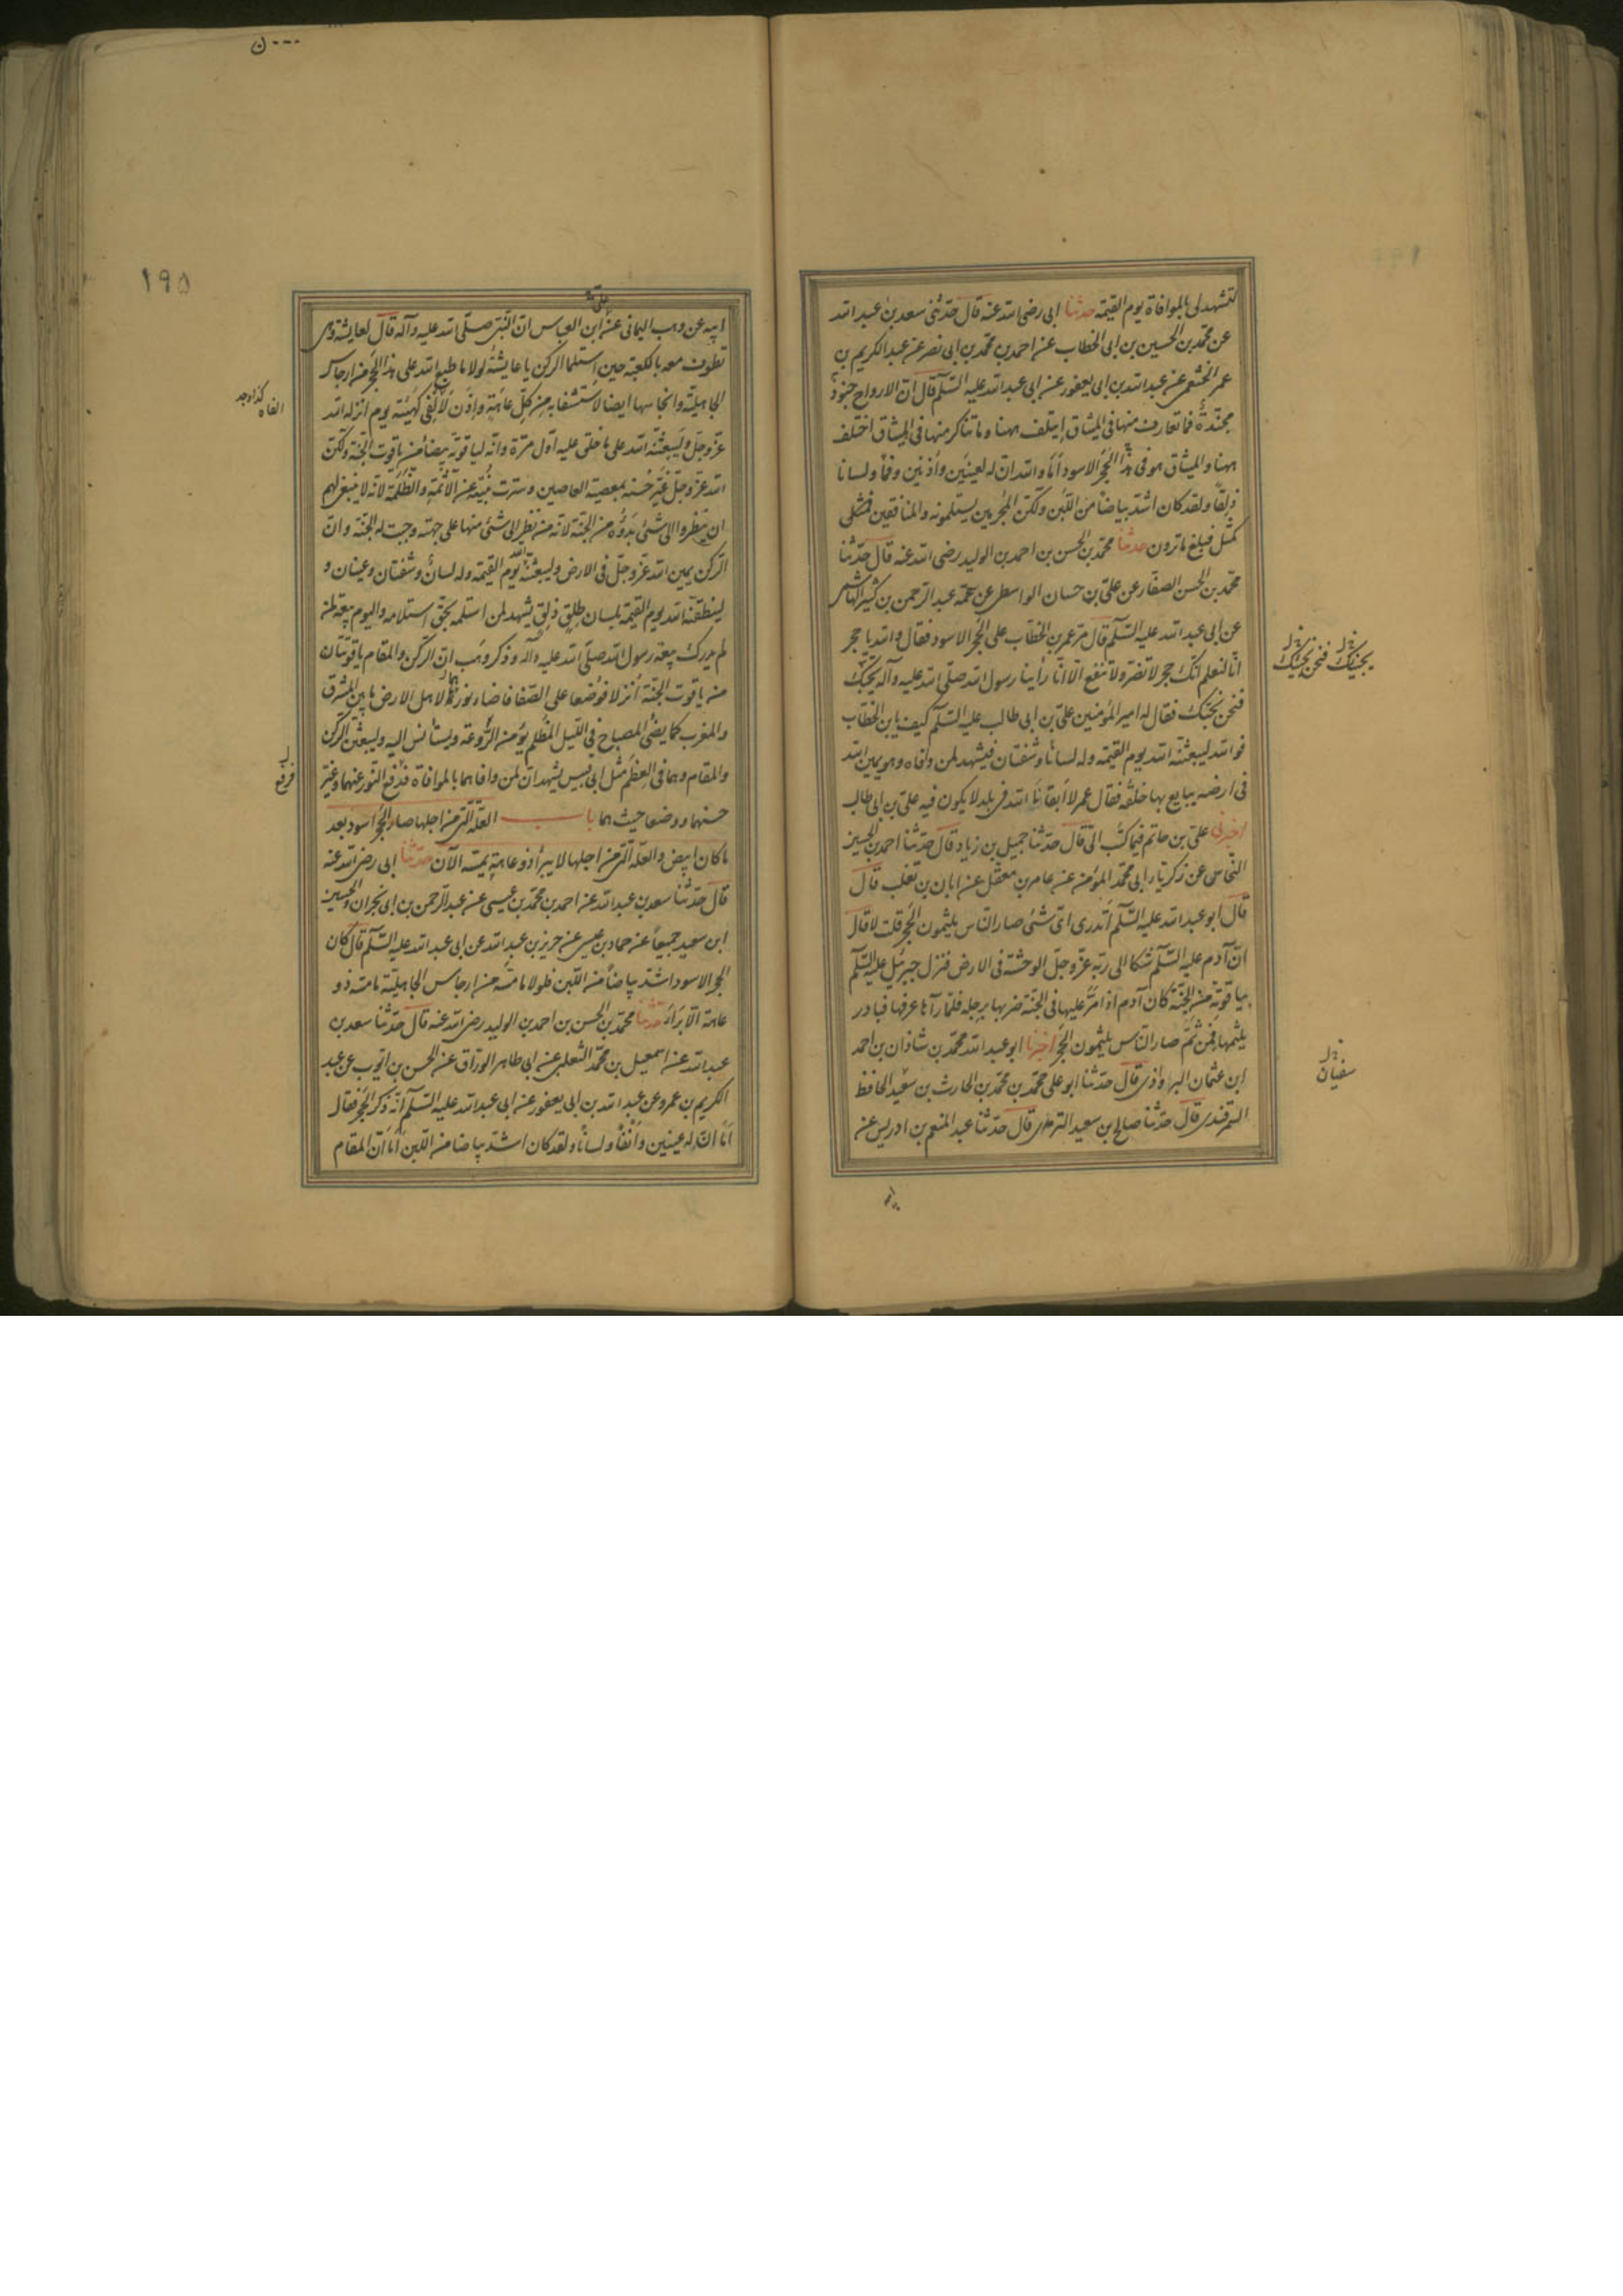 لتشهد لی بالموافاة یوم القیمة حدثنا ابی رضی الله عنه قال حدّثنی سعد بن عبد الله
عن محمّد بن الحسین بن ابی الخطاب عن احمد بن محمّد بن ابی نصر عن عبد الکریم بن
عمر الخثعمی عن عبد الله بن ابی یعفور عن ابی عبد الله علیه السّلم قال ان الارواح جنود
مجنّدة فما تعارف منها فی المیثاق ایتلف ههنا وما تناکر منها فی المیثاق اختلف
ههنا والمیثاق هو فی هذا الحجر الاسود اَمَا والله ان له لعینین واُذنین وفمًا ولسانا
ذلقًا ولقد کان اشد بیاضًا من اللّبن ولکن المجرمین یستلمونه والمنافقین فمثل
کمثل فبلغ ما ترون حدثنا محمّد بن الحسن بن احمد بن الولید رضی الله عنه قال حدّثنا
محمّد بن الحسن الصفّار عن علیّ بن حسان الواسطی عن عمّه عبد الرّحمن بن کثیر الهاشمی
عن ابی عبد الله علیه السّلم قال مرّ عمر بن الخطّاب علی الحجر الاسود فقال والله یا حجر
انّا لنعلم انّک حجر لا تضرّ ولا تنفع الّا انّا رأینا رسول الله صلّی الله علیه وآله یحبّک
فنحن نحبّک فقال له امیر المؤمنین علیّ بن ابی طالب علیه السّلم کیف یا بن الخطّاب
فوالله لیبعثنّه الله یوم القیمة وله لسانٌ وشفتان فیشهد لمن وافاه وهو یمین الله
فی ارضه یبایع بها خلقه فقال عمر لا اَبقانا الله فی بلد لا یکون فیه علیّ بن ابی طالب
اخبرنی علیّ بن حاتم فیما کتب الیّ قال حدّثنا جمیل بن زیاد قال حدّثنا احمد بن الحسین
النّخّاس عن زکریّا ابی محمّد المؤمن عن عامر بن معقل عن ابان بن تغلب قال
قال ابو عبد الله علیه السّلم اَتدری لایّ شئ صار النّاس یلثمون الحجر قلت لا قال
انّ آدم علیه السّلم شکا الی ربّه عزّ وجلّ الوحشة فی الارض فنزل جبرئیل علیه السّلم
بیاقوتة من الجنّة کان آدم اذا مرّ علیها فی الجنّة ضربها برجله فلمّا رآها عرفها فبادر
یلثمها فمن ثَمّ صار النّاس یلثمون الحجر اخبرنا ابو عبد الله محمّد بن شاذان بن احمد
ابن عثمان البرواذی قال حدّثنا ابو علی محمّد بن محمّد بن الحارث بن سعید الحافظ
السّمرقندی قال حدّثنا صالح بن سعید الترمذی قال حدّثنا عبد المنعم بن ادریس عن
یحبّک فنحن نحبّک
سفیان
۱۹۵
ابیه عن وهب الیمانی عن ابن العباس انّ النّبی صلّی الله علیه وآله قال لعایشة وهی
تطوف معه بالکعبة حین استلما الرکن یا عایشة لولا ما طبع الله علی هذا الحجر من ارجاس
الجاهلیّة وانجاسها ایضا لاستشفا به من کلّ عاهة واِذَن لَاُلفی کهیئته یوم انزله الله
عزّ وجلّ ولیبعثنّه الله علی ما خلق علیه اوّل مرّة وانّه لیاقوتة بیضاء من یاقوت الجنّة ولکن
الله عزّ وجلّ غیّر حُسنه بمعصیة العاصین وسترت بنیّته عن الأئمة والظلمة لانّه لا ینبغی لهم
ان ینظروا الی شئ بَدؤه من الجنّة لانّه من نظر الی شئ منها علی جهته وجبت له الجنّة وانّ
الرّکن یمین الله عزّ وجلّ فی الارض ولیبعثنّه الله یوم القیمة وله لسانٌ وشفتان وعینان و
لینطقنّه الله یوم القیمة بلسان طلق ذلق یشهد لمن استلمه بحقّ استلامه والیوم بیعة لمن
لم یدرک بیعة رسول الله صلّی الله علیه وآله وذکر وهب انّ الرکن والمقام یاقوتتان
من یاقوت الجنّة اُنزلا فوُضعا علی الصّفا فاضاء نورهما لاهل الارض ما بین المشرق
والمغرب کما یضئ المصباح فی اللّیل المظلم یؤمن الرَّوعة ویستأنس الیه ولیبعثن الرّکن
والمقام وهما فی العِظَم مثل ابی قبیس یشهدان لمن وافاهما بالموافاة فرُفع النّور عنهما وغیّر
حسنهما ووضعا حیث هما باب العلّة الّتی من اجلها صار الحجر اسود بعد
ما کان ابیض والعلّة الّتی من اجلها لا یبرأ ذو عاهة یمسّه الآن حدّثنا ابی رضی الله عنه
قال حدّثنا سعد بن عبد الله عن احمد بن محمّد بن عیسی عن عبد الرّحمن بن ابی نجران والحسین
ابن سعید جمیعًا عن حماد بن عیسی عن حریز بن عبد الله عن ابی عبد الله علیه السّلم قال کان
الحجر الاسود اشدّ بیاضًا من اللّبن فلولا ما مسّه من ارجاس الجاهلیّة ما مسّه ذو
عاهة الّا بَرَأَ حدّثنا محمّد بن الحسن بن احمد بن الولید رضی الله عنه قال حدّثنا سعد بن
عبد الله عن اسمعیل بن محمّد الثعلبی عن ابی طاهر الورّاق عن الحسن بن ایّوب عن عبد
الکریم بن عمرو عن عبد الله بن ابی یعفور عن ابی عبد الله علیه السّلم انّه ذکر الحجر فقال
اَمَا انّ له عینین وأنفًا ولسانًا ولقد کان اشدّ بیاضا من اللّبن اَمَا انّ المقام
فرفع